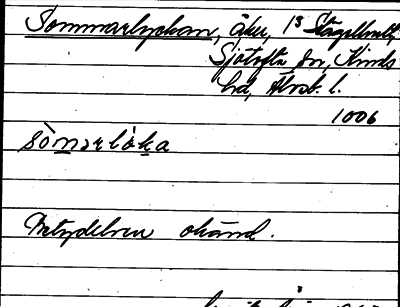 Sommarlyckan, åker, 1⁵ Stagelhult,
Sjötofta sn, Kinds
hd, Älvsb. l.
1006
sòmərlỳka
Betydelsen okänd.